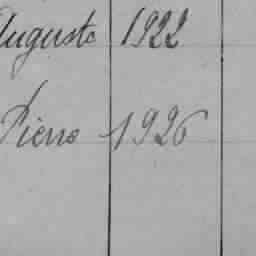 Auguste 1922
Pierre 1926